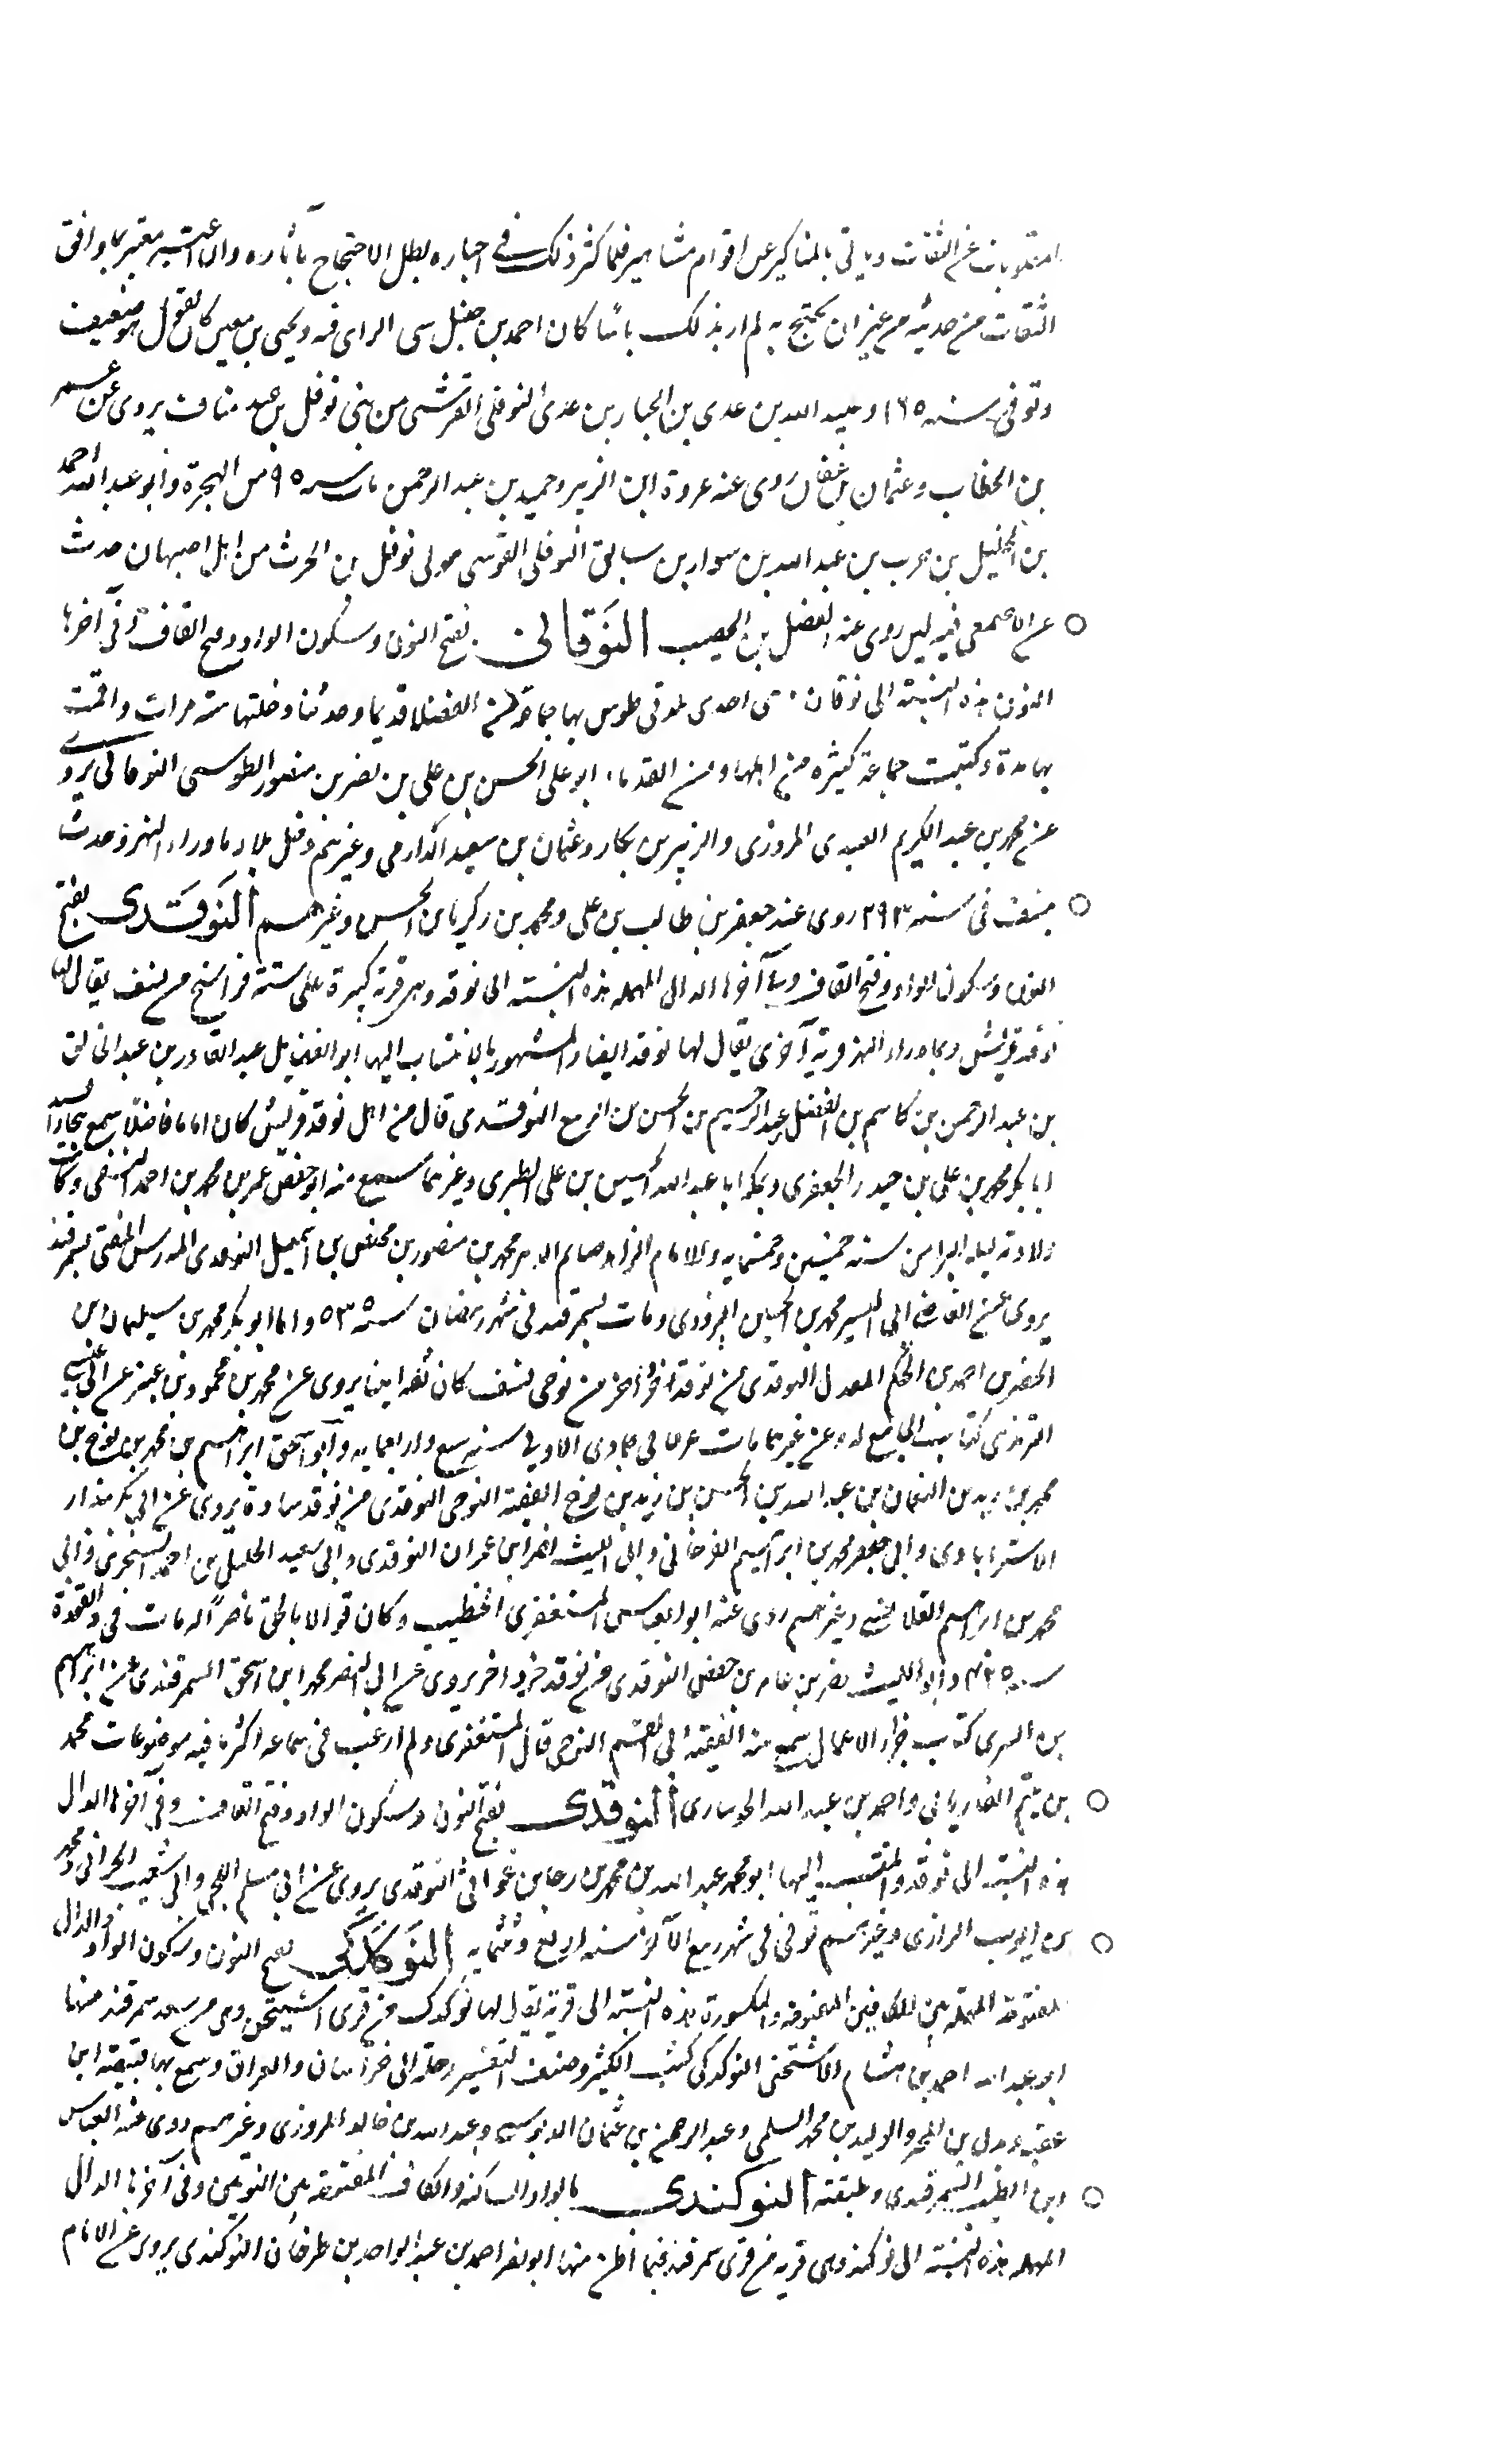 المقلوبات عن الثقات ويأتي بالمناكير عن اقوام مشاهير فلما كثر ذلك في اخباره بطل الاحتجاج بآثاره وان اعتبر معتبر بما وافق
الثقات من حديثه من غير ان يحتج به لم ار بذلك بأسًا كان احمد بن حنبل سي الراي فيه ويحيى بن معين كان يقول هو ضعيف
وتوفي سنه ١٦٥ وعبيد الله بن عدى بن الخيار بن عدى النوفلي القرشي من بني نوفل بن عبد مناف يروى عن عمر
بن الخطاب وعثمان بن عفان روى عنه عروة ابن الزبير وحميد بن عبد الرحمن مات سنه ٩٥ من الهجرة وابو عبد الله احمد
بن الخليل بن حرب بن عبد الله بن سوار بن سابق النوفلي القومسي مولى نوفل بن الحرث من اهل اصبهان حدث
عن الاصمعي فيه لين روى عنه الفضل بن الخصيب النَوقاني بفتح النون وسكون الواو وفتح القاف وفي آخرها
النون هذه النسبة الى نوقان وهي احدى بلدتي طوس بها جماعة من الفضلا قديما وحديثا دخلتها ستة مرات واقمت
بها مدة وكتبت جماعة كثيرة من اهلها ومن القدما ابو علي الحسن بن علي بن نصر بن منصور الطوسي النوقاني يروى
عن محمد بن عبد الكريم العبدى المروزى والزبير بن بكار وعثمان بن سعيد الدارمي وغيرهم دخل بلاد ما وراء النهر وحدث
بنسف في سنه ٢٩٣ روى عنه جعفر بن طالب بن علي ومحمد بن زكريا بن الحسن وغيرهم النَوقَدى بفتح
النون وسكون الواو وفتح القاف وفي آخرها الدال المهملة هذه النسبة الى نوقد وهي قرية كبيرة على ستة فراسخ من نسف يقال لها
نوقد قريش وبما وراء النهر قرية آخرى يقال لها نوقد ايضا والمشهور بالانتساب اليها ابو الفضل عبد القادر بن عبد الخالق
بن عبد الرحمن بن قاسم بن الفضل عبد الرحيم بن الحسن بن الربيع النوقدى قال من اهل نوقد قريش كان اماما فاضلا سمع ببخارا السيد
ابا بكر محمد بن علي بن حيدر الجعفرى وبمكة ابا عبد الله الحسين بن علي الطبرى وغيرهما سمع منه ابو حفص عمر بن محمد بن احمد النسفي وكانت
ولادته ليلة البراءة من سنه خمسين وخمسمايه والامام الزاهد صايم الدهر محمد بن منصور بن مخلص بن اسمعيل النوقدى المدرس المفتي بسمرقند
يروى عن القاضي ابي اليسر محمد بن الحسين البزدوى ومات بسمرقند في شهر رمضان سنه ٥٣٥ واما ابو بكر محمد بن سليمان بن
الخضر بن احمد بن الحكم المعدل النوقدى من نوقد اخرى من نواحي نسف كان ثقة ايضا يروى عن محمد بن محمود بن عنبر عن ابي عيسى
الترمذى كتاب الجامع له وعن غيرهما مات في جمادى الاولى سنه سبع واربعمايه وابو اسحق ابراهيم بن محمد بن نوح بن
محمد بن زيد بن النعمان بن عبد الله بن الحسن بن زيد بن نوح الفقيه النوحي النوقدى من نوقد ساوة يروى عن ابي بكر بندار
الاستراباذى وابي جعفر محمد بن ابراهيم الفرخاني وابي الليث نصر ابن عمران النوقدى وابي سعيد الخليل بن احمد السنجزى وابي
محمد بن ابراهيم القلانسي وغيرهم روى عنه ابو العباس المستغفرى الخطيب وكان قوالا بالحق ناصرًا له مات في ذى القعدة
سنه ٤٢٥ وابو الليث نصر بن عامر بن حفص النوقدى من نوقد خرد اخر يروى عن ابي النصر محمد ابن اسحق السمرقندى عن ابراهيم
بن السرى كتاب جزاء الاعمال سمع منه الفقيه ابي القسم النوحي قال المستغفرى ولم ارغب في سماعه اكثر ما فيه موضوعات محمد
بن تميم الفاريابي واحمد بن عبد الله الجويبارى النوقدى بفتح النون وسكون الواو وفتح القاف وفي آخرها الدال
هذه النسبة الى نوقد والمنتسب اليها ابو محمد عبد الله بن محمد بن رجا بن غوالي النوقدى يروى عن ابي مسلم الكجي وابي شعيب الحراني ومحمد
بن ايوب الرازى وغيرهم توفي في شهر ربيع الآخر سنه اربع وثلثمايه النَوكَدَكي بفتح النون وسكون الواو والدال
المفتوحة المهملة بين الكافين المفتوحة والمكسورة هذه النسبة الى قرية يقال لها نوكدك من قرى اشتيخن وهي من سغد سمرقند منها
ابو عبد الله احمد بن هشام الاشتيخني النوكدكي كتب الكثير وصنف التفسير رحل الى خراسان والعراق وسمع بها قبيصة ابن
عقبه وبدل بن المحبر والوليد بن محمد السلمي وعبد الرحمن بن عثمان الدبوسي وعبد الله بن خالد المروزى وغيرهم روى عنه العباس
ابن الطيب السمرقندى وطبقته النوكندى بالواو الساكنه والكاف المفتوحة بين النونين وفي آخرها الدال
المهملة هذه النسبة الى نوكند وهي قريه من قرى سمرقند فيما اظن منها ابو نصر احمد بن عبد الواحد بن طرخان النوكندى يروى عن الامام